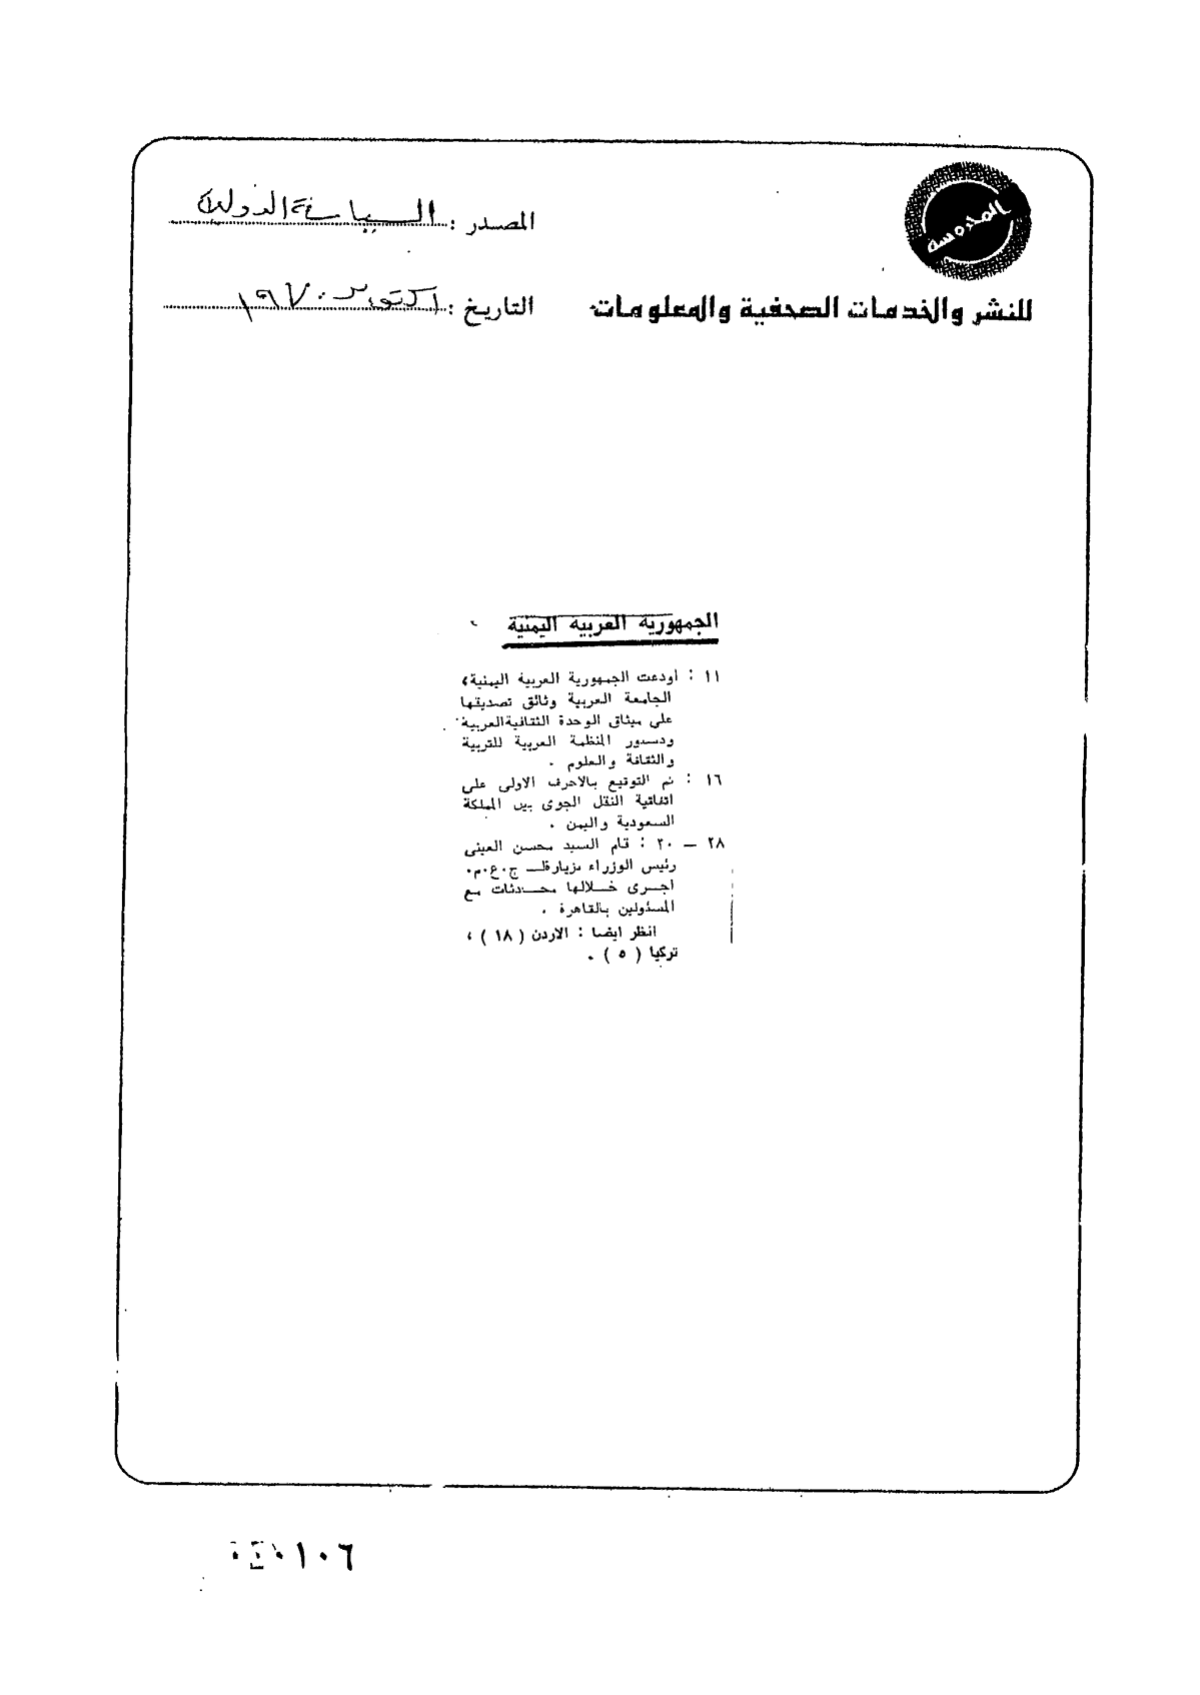 المحروسة
المصدر : السياسة الدولية
للنشر والخدمات الصحفية والمعلومات
التاريخ : اكتوبر ١٩٧٠
الجمهورية العربية اليمنية
١١ : اودعت الجمهورية العربية اليمنية،
الجامعة العربية وثائق تصديقها
على ميثاق الوحدة الثقافية العربية
ودستور المنظمة العربية للتربية
والثقافة والعلوم .
١٦ : تم التوقيع بالاحرف الاولى على
اتفاقية النقل الجوى بين المملكة
السعودية واليمن .
٢٨ – ٣٠ : قام السيد محسن العينى
رئيس الوزراء بزيارة ج.ع.م.
اجرى خلالها محادثات مع
المسئولين بالقاهرة .
انظر ايضا : الاردن ( ١٨ ) ،
تركيا ( ٥ ) .
١٠٦